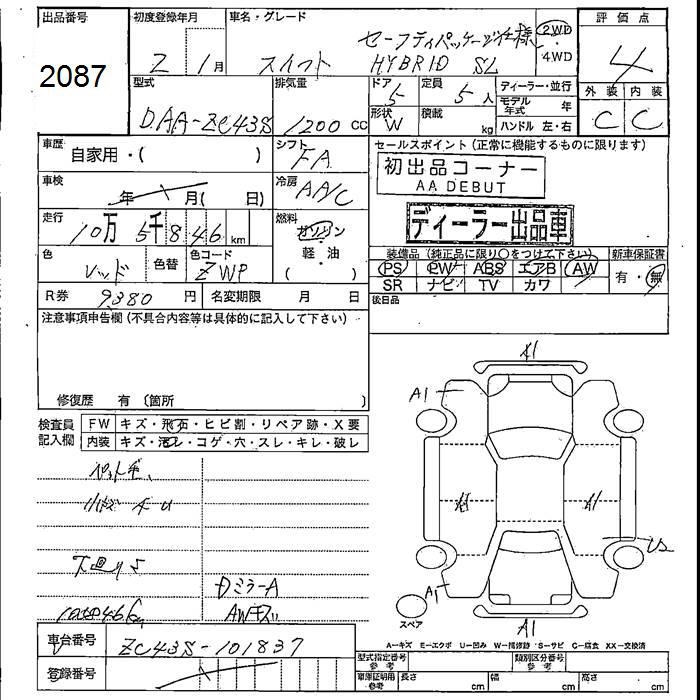 出品番号
2087
初度登録年月
2 1月
車名・グレード
セーフティパッケージ仕様
スイフト HYBRID SL
2WD
・
4WD
評価点
4
型式
DAA-ZC43S
排気量
1200 cc
ドア 5
形状 W
定員 5人
積載 kg
ディーラー・並行
モデル年式 年
ハンドル 左・右
外装 内装
C C
車歴
自家用・( )
シフト
FA
車検
年 月( 日)
冷房
AA/C
走行
10万 5千 846 km
燃料
ガソリン
・
軽・油
( )
色
レッド
色替
色コード
ZWP
R券 9,380 円
名変期限 月 日
セールスポイント(正常に機能するものに限ります)
初出品コーナー
AA DEBUT
ディーラー出品車
装備品(純正品に限り○をつけて下さい)
新車保証書
PS PW ABS エアB AW
SR ナビ TV カワ
有・無
後日品
注意事項申告欄(不具合内容等は具体的に記入して下さい)
修復歴 有 (箇所
検査員
記入欄
FW キズ・飛石・ヒビ割・リペア跡・X要
内装 キズ・汚レ・コゲ・穴・スレ・キレ・破レ
下回りS
Dミラー A
AWキズ
105846km
A1
A1
A1
A1
U2
A1
A1
スペア
A-キズ E-エクボ U-凹み W-補修跡 S-サビ C-腐食 XX-交換済
車台番号 ZC43S-101837
登録番号
型式指定番号
参考
類別区分番号
参考
車庫証明用
参考
長さ cm 幅 cm 高さ cm